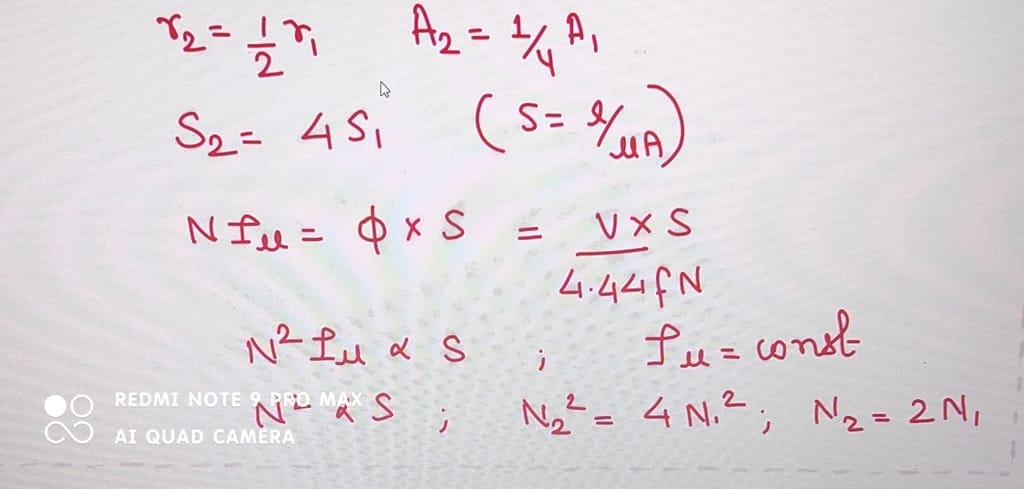 r₂ = 1/2 r₁ A₂ = 1/4 A₁
S₂ = 4 S₁ ( S = l/μA )
N Iμ = ϕ × S = V × S / 4.44 f N
N² Iμ ∝ S ; Iμ = const
N² ∝ S ; N₂² = 4 N₁² ; N₂ = 2 N₁
REDMI NOTE 9 PRO MAX
AI QUAD CAMERA